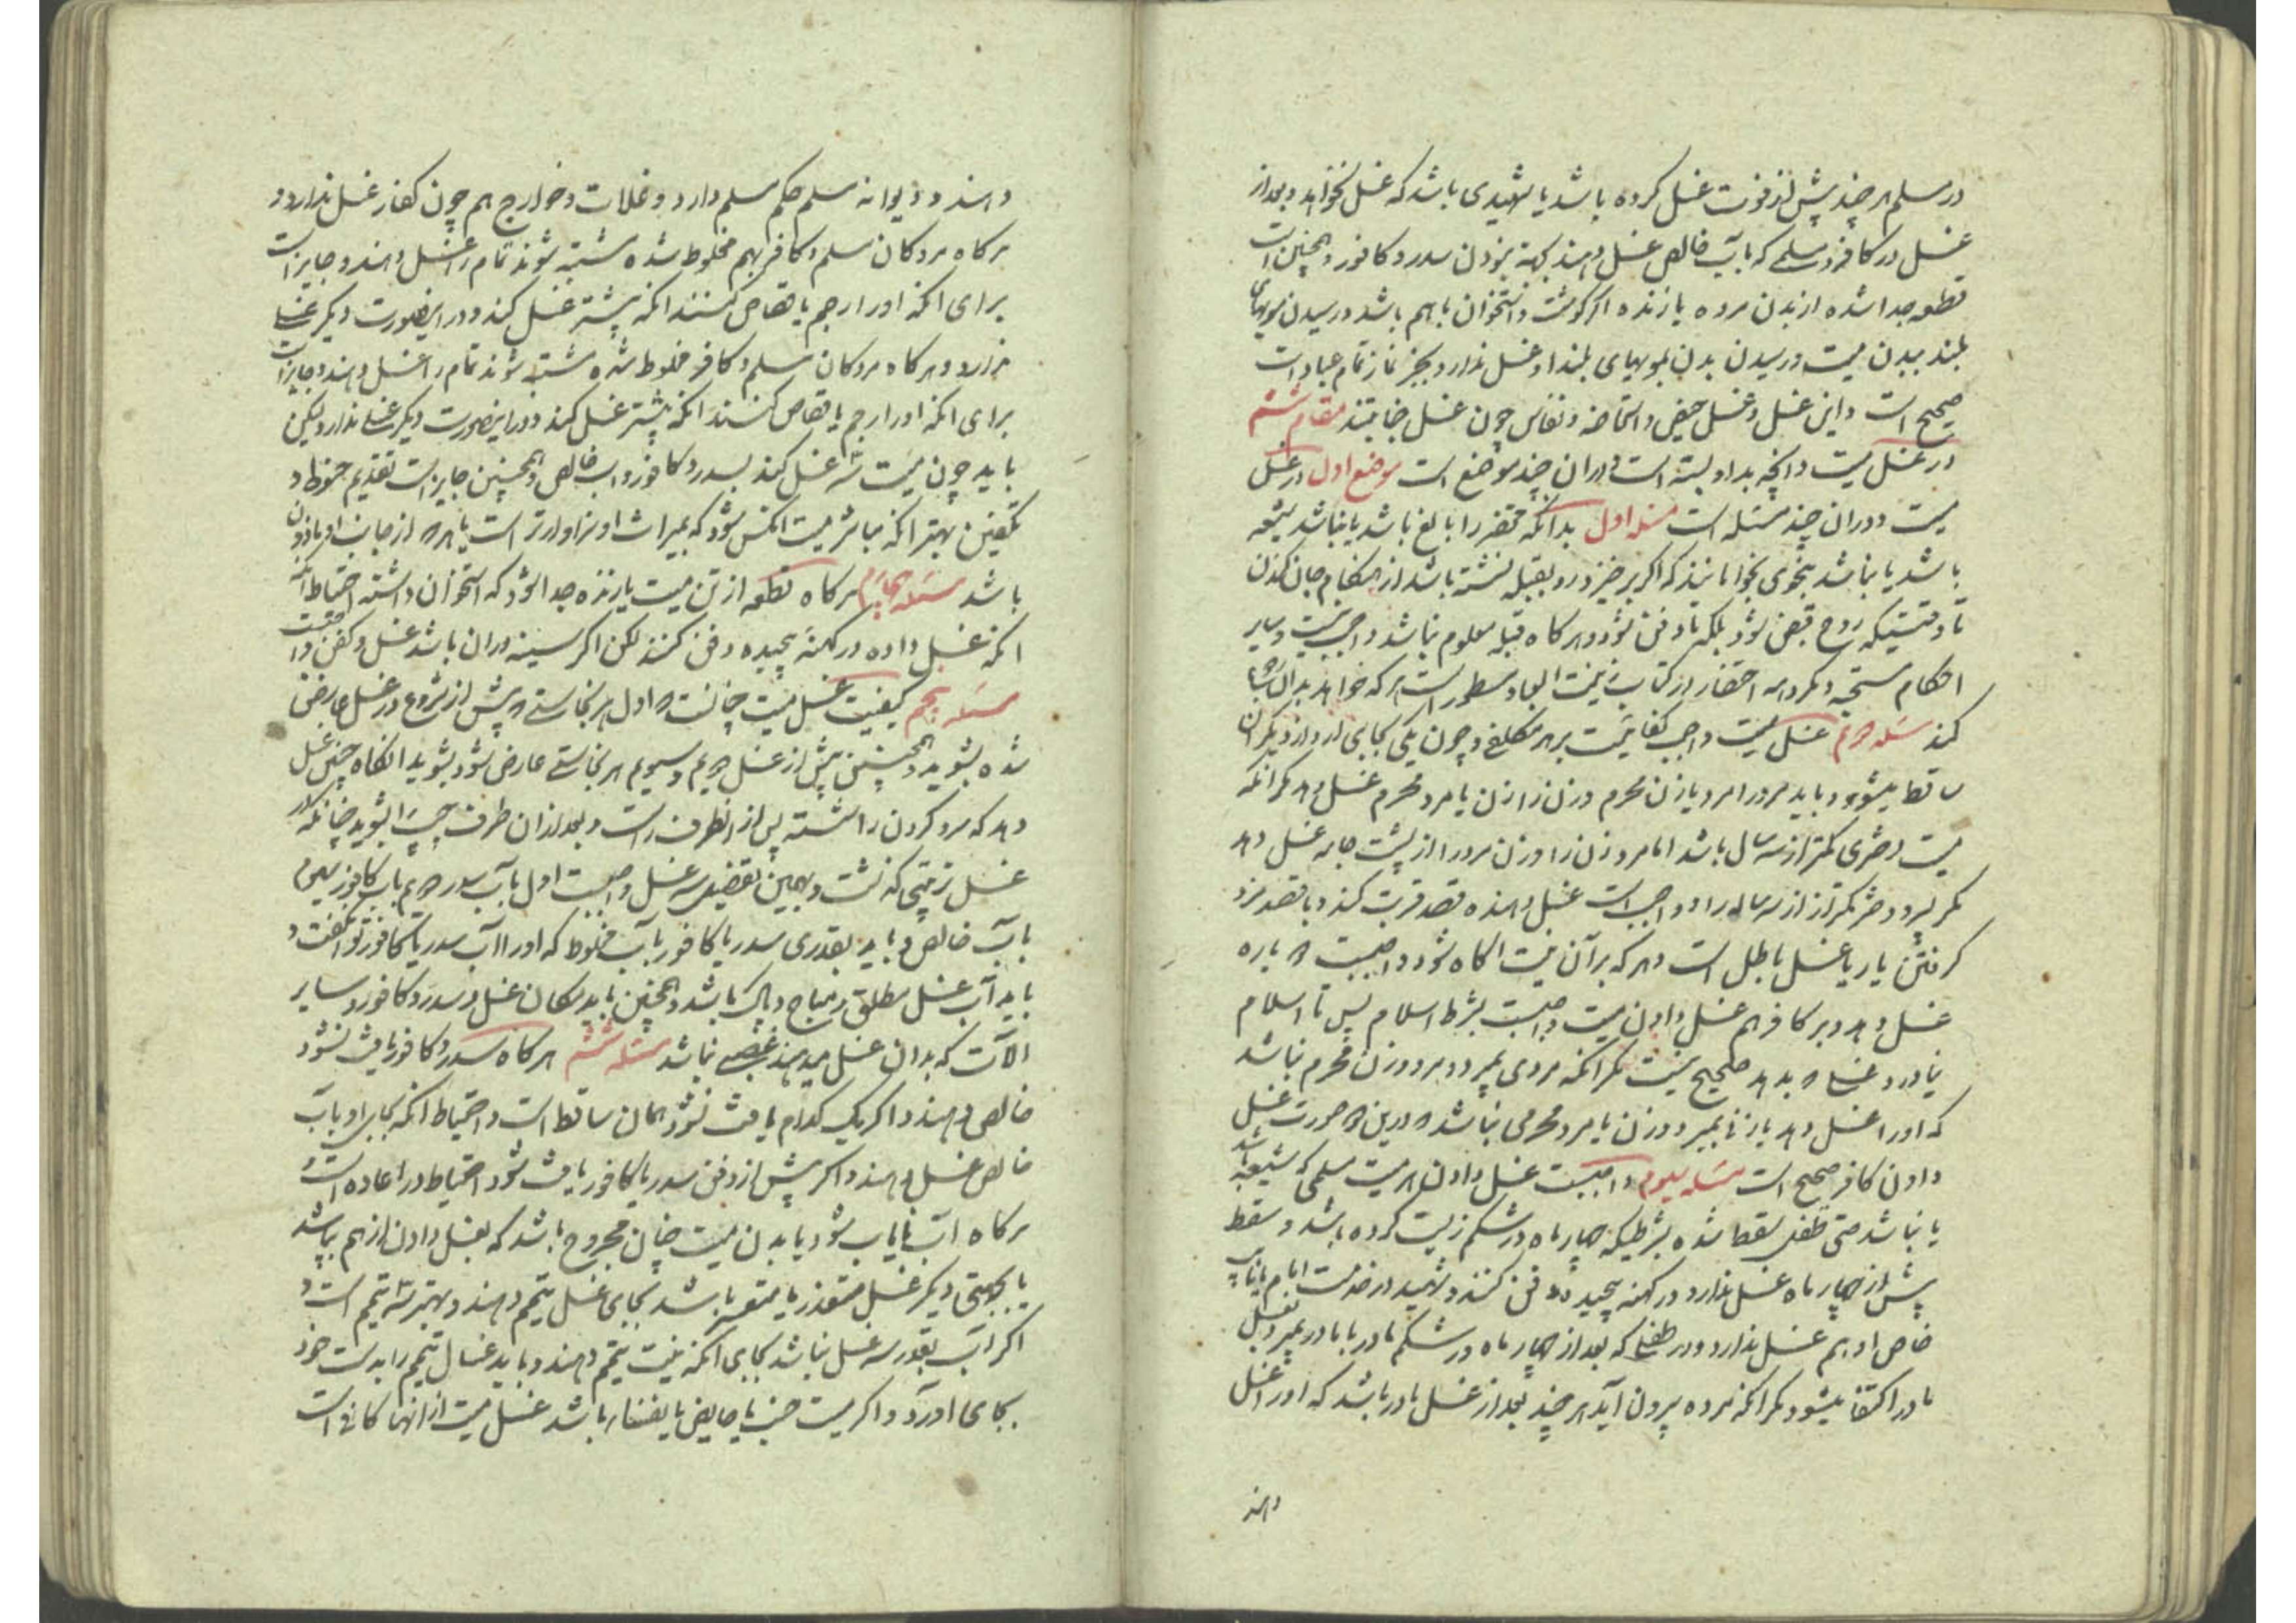 در مسلم هر چند پیش از فوت غسل کرده باشد یا شهیدی باشد که غسل نخواهد و بعد از
غسل در کافر و مسلمی که بآب خالص غسل دهند بجهة نبودن سدر و کافور و همچنین است
قطعه جدا شده از بدن مرده یا زنده اگر گوشت و استخوان با هم باشد و رسیدن مویهای
بلند ببدن میت و رسیدن بدن بمویهای بلند او غسل ندارد و بجز نماز تمام عبادات
صحیح است و این غسل و غسل حیض و استحاضه و نفاس چون غسل جنابتند مقام ششم
در غسل میت و آنچه بدو بسته است و در آن چند موضع است موضع اول در غسل
میت و در ان چند مسئله است مسئله اول بدانکه محتضر را بالغ باشد یا نباشد شیعه
باشد یا نباشد بنحوی بخوابانند که اگر برخیزد رو بقبله نشسته باشد از هنگام جان کندن
تا وقتیکه روح قبض شود بلکه تا دفن شود و هر گاه قبله معلوم نباشد واجب نیست و سایر
احکام مستحبه و مکروهه احتضار در کتاب مسطور است هر که خواهد بدان
کند مسئله دویم غسل میت واجب کفائیست بر هر مکلفی و چون یکی بجای آرد از دیگران
ساقط میشود و باید مرد را مرد یا زن محرم و زن را زن یا مرد محرم غسل دهد مگر انکه
میت دختری کمتر از سه سال باشد اما مرد زن را و زن مرد را از پشت جامه غسل دهد
مگر پسر و دختر کمتر از سه ساله را و واجب است غسل دهنده قصد قربت کند و با قصد مزد
گرفتن یا ریا غسل باطل است و هر که بر آن میت اگاه شود واجبست دوباره
غسل دهد و بر کافر هم غسل دادن میت واجبست بشرط اسلام پس تا اسلام
نیاورد و غسل بدهد صحیح نیست مگر انکه مردی بمیرد و مرد و زن محرم نباشد
که او را غسل دهد یا زنی بمیرد و زن یا مرد محرمی نباشد درین صورت غسل
دادن کافر صحیح است مسئله سیوم واجبست غسل دادن هر میت مسلمی که شیعه باشد
یا نباشد حتی طفل سقط شده بشرطیکه چهار ماه در شکم زیست کرده باشد و سقط
پیش از چهار ماه غسل ندارد و در کهنه پیچیده دفن کنند و شهید در خدمت امام یا نایب
خاص او هم غسل ندارد و در طفلی که بعد از چهار ماه در شکم مادر با مادر بمیرد بغسل
مادر اکتفا میشود مگر انکه مرده بیرون آید هر چند بعد از غسل مادر باشد که او را غسل
دهند
دهند و دیوانه مسلم حکم مسلم دارد و غلات و خوارج هم چون کفار غسل ندارد و
هر گاه مردگان مسلم و کافر بهم مخلوط شده مشتبه شوند تمام را غسل دهند و جایز است
برای انکه او را رجم یا قصاص کنند انکه پیشتر غسل کند و در اینصورت دیگر غسلی
ندارد و هر گاه مردگان مسلم و کافر مخلوط شده مشتبه شوند تمام را غسل دهند و جایز است
برای انکه او را رجم یا قصاص کنند انکه پیشتر غسل کند و در اینصورت دیگر غسلی ندارد لیکن
باید چون میت سه غسل کند بسدر و کافور و اب خالص و همچنین جایز است تقدیم حنوط و
تکفین بهتر انکه مباشر میت انکس شود که بمیراث او سزاوارتر است یا از جانب او ماذون
باشد مسئله چهارم هر گاه قطعه از تن میت یا زنده جدا شود که استخوان داشته احتیاط انکه
انکه غسل داده در کهنه پیچیده دفن کنند لکن اگر سینه در ان باشد غسل و کفن و
مسئله پنجم کیفیت غسل میت چنانست اول هر نجاستی پیش از شروع در غسل عارض
شده بشوید و همچنین پیش از غسل دویم و سیوم هر نجاستی عارض شود بشوید انگاه چنین غسل
دهد که سر و گردن را شسته پس از ان طرف راست و بعد از ان طرف چپ را بشوید چنانکه در
غسل ترتیبی گذشت و بهمین تفصیل سه غسل واجبست اول بآب سدر دویم باب کافور سیوم
بآب خالص و باید بقدری سدر یا کافور بآب مخلوط که او را آب سدر یا کافور توان گفت و
باید آب غسل مطلق و مباح و پاک باشد و همچنین باید مکان غسل و سدر و کافور و سایر
الات که بدان غسل میدهند غصبی نباشد مسئله ششم هر گاه سدر و کافور یافت نشود
خالص دهند و اگر یک کدام یافت نشود همان ساقط است و احتیاط انکه بجای او باب
خالص غسل دهند و اگر پیش از دفن سدر یا کافور یافت شود احتیاط در اعاده است و
هر گاه آب نایاب شود یا بدن میت چنان مجروح باشد که بغسل دادن از هم بپاشد
یا بجهتی دیگر غسل متعذر یا متعسر باشد بجای غسل تیمم دهند و بهتر سه تیمم است و
اگر آب بقدر سه غسل نباشد بجای انکه نیست تیمم دهند و باید غسال تیمم را بدست خود
بجای اورد و اگر میت جنب یا حایض یا نفسا باشد غسل میت از انها کافی است